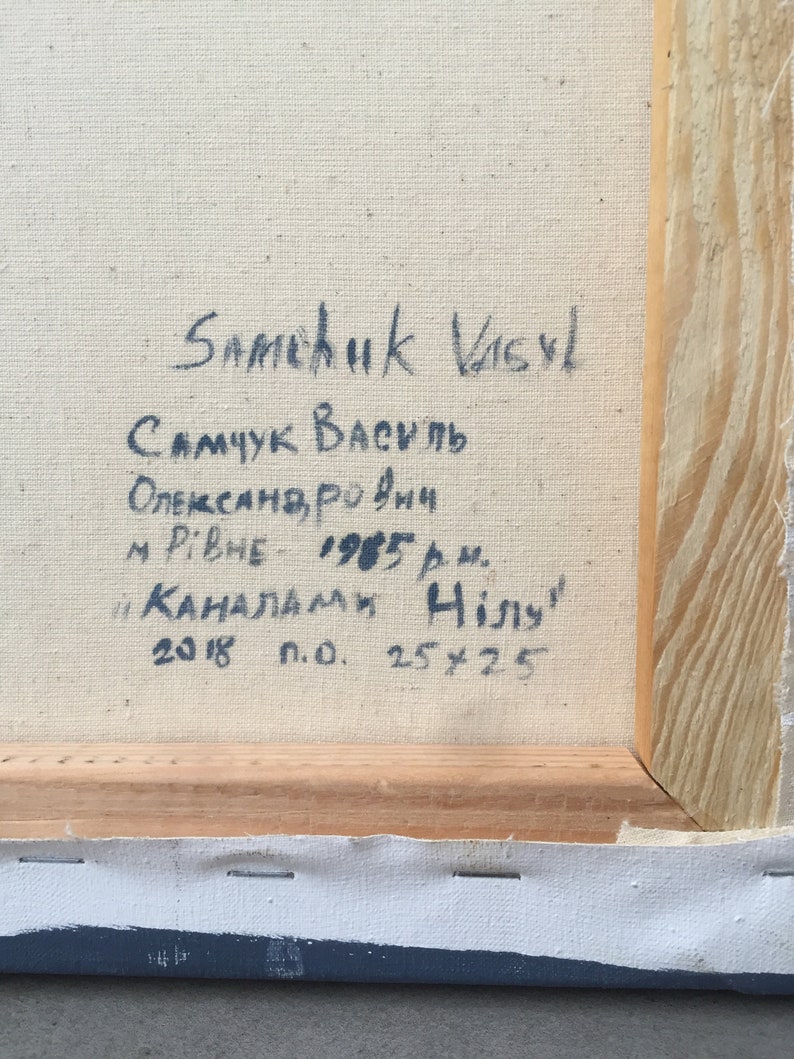 Samchuk Vasyl
Самчук Василь
Олександрович
м Рівне 1985 р.н.
"Каналами Нілу"
2018 п.о. 25x25